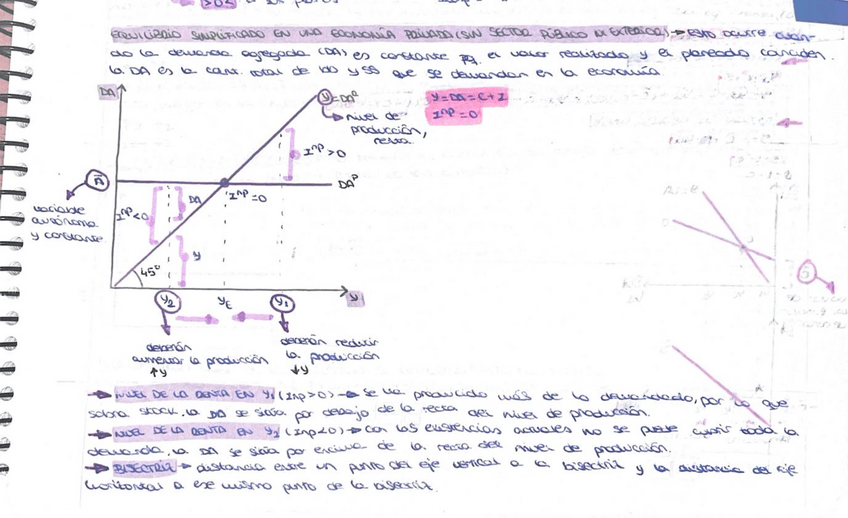 EQUILIBRIO SIMPLIFICADO EN UNA ECONOMÍA PRIVADA (SIN SECTOR PÚBLICO NI EXTERIOR) → Esto ocurre cuan-
do la demanda agregada (DA) es constante el valor realizado y el planeado coinciden.
La DA es la cant. total de bb y ss que se demandan en la economía.
DA
Y=DAᴿ
Y=DA=C+I
Iⁿᵖ=0
nivel de
producción,
renta.
Iⁿᵖ>0
Ā
DAᴾ
variable
autónoma
y constante
Iⁿᵖ<0
DA
Iⁿᵖ=0
y
45º
y₂
yE
y₁
y
deberán
aumentar la producción
↑y
deberán reducir
la producción
↓y
→ NIVEL DE LA RENTA EN y₁ (Inp>0) → se ha producido más de lo demandado, por lo que
sobra stock, la DA se sitúa por debajo de la recta del nivel de producción.
→ NIVEL DE LA RENTA EN y₂ (Inp<0) → con las existencias actuales no se puede cubrir toda la
demanda, la DA se sitúa por encima de la recta del nivel de producción.
→ BISECTRIZ → distancia entre un punto del eje vertical a la bisectriz y la distancia del eje
horizontal a ese mismo punto de la bisectriz.